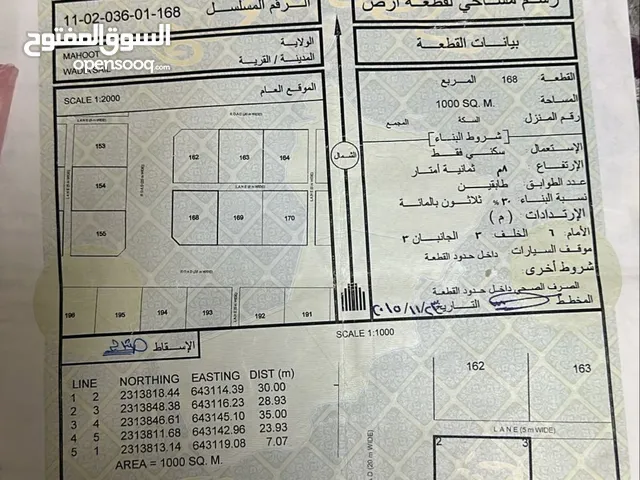 رسم مساحي لقطعة أرض
الرقم المسلسل
11-02-036-01-168
السوق المفتوح
opensooq.com
بيانات القطعة
الولاية
MAHOOT
المدينة / القرية
القطعة 168 المربع
المساحة 1000 SQ. M.
رقم المنزل السكة المجمع
[شروط البناء]
الإستعمال سكني فقط
الإرتفاع ٨م ثمانية أمتار
عدد الطوابق طابقين
نسبة البناء ٣٠٪ ثلاثون بالمائة
الإرتدادات ( م )
الأمام ٦ الخلف ٣ الجانبان ٣
موقف السيارات داخل حدود القطعة
شروط أخرى
الصرف الصحي داخل حدود القطعة
المخطط التاريخ ٢٠١٥/١١/٢٣
SCALE 1:2000
الموقع العام
ROAD (20 m WIDE)
153
162
163
164
LANE (5 m WIDE)
154
168
169
170
155
ROAD (20 m WIDE)
196
195
194
193
192
191
الشمال
الإسقاط
SCALE 1:1000
LINE NORTHING EASTING DIST (m)
1 2 2313818.44 643114.39 30.00
2 3 2313848.38 643116.23 28.93
3 4 2313846.61 643145.10 35.00
4 5 2313811.68 643142.96 23.93
5 1 2313813.14 643119.08 7.07
AREA = 1000 SQ. M.
162
163
LANE (5 m WIDE)
2
3
AD (20 m WIDE)